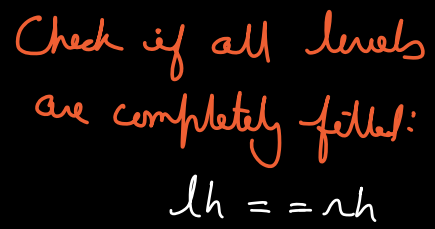 Check if all levels
are completely filled:
lh = = rh